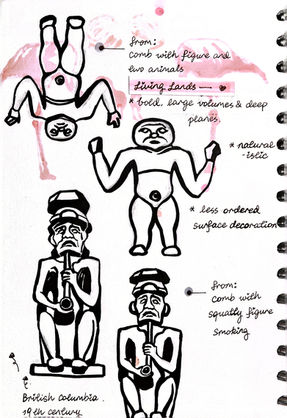 from:
comb with figure and
two animals
Living Lands →
* bold, large volumes & deep
planes.
* natural
-istic
* less ordered
surface decoration
from:
comb with
squatty figure
smoking
British Columbia.
19th century